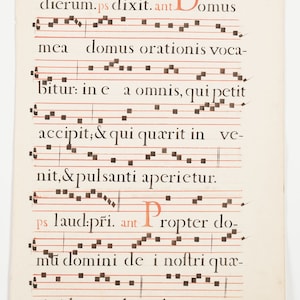 dierum. ps dixit. ant Domus
mea domus orationis voca-
bitur: in e a omnis, qui petit
accipit; & qui quærit in ve-
nit, & pulsanti aperietur.
ps laud: pri. ant Propter do-
mũ domini de i nostri quæ-